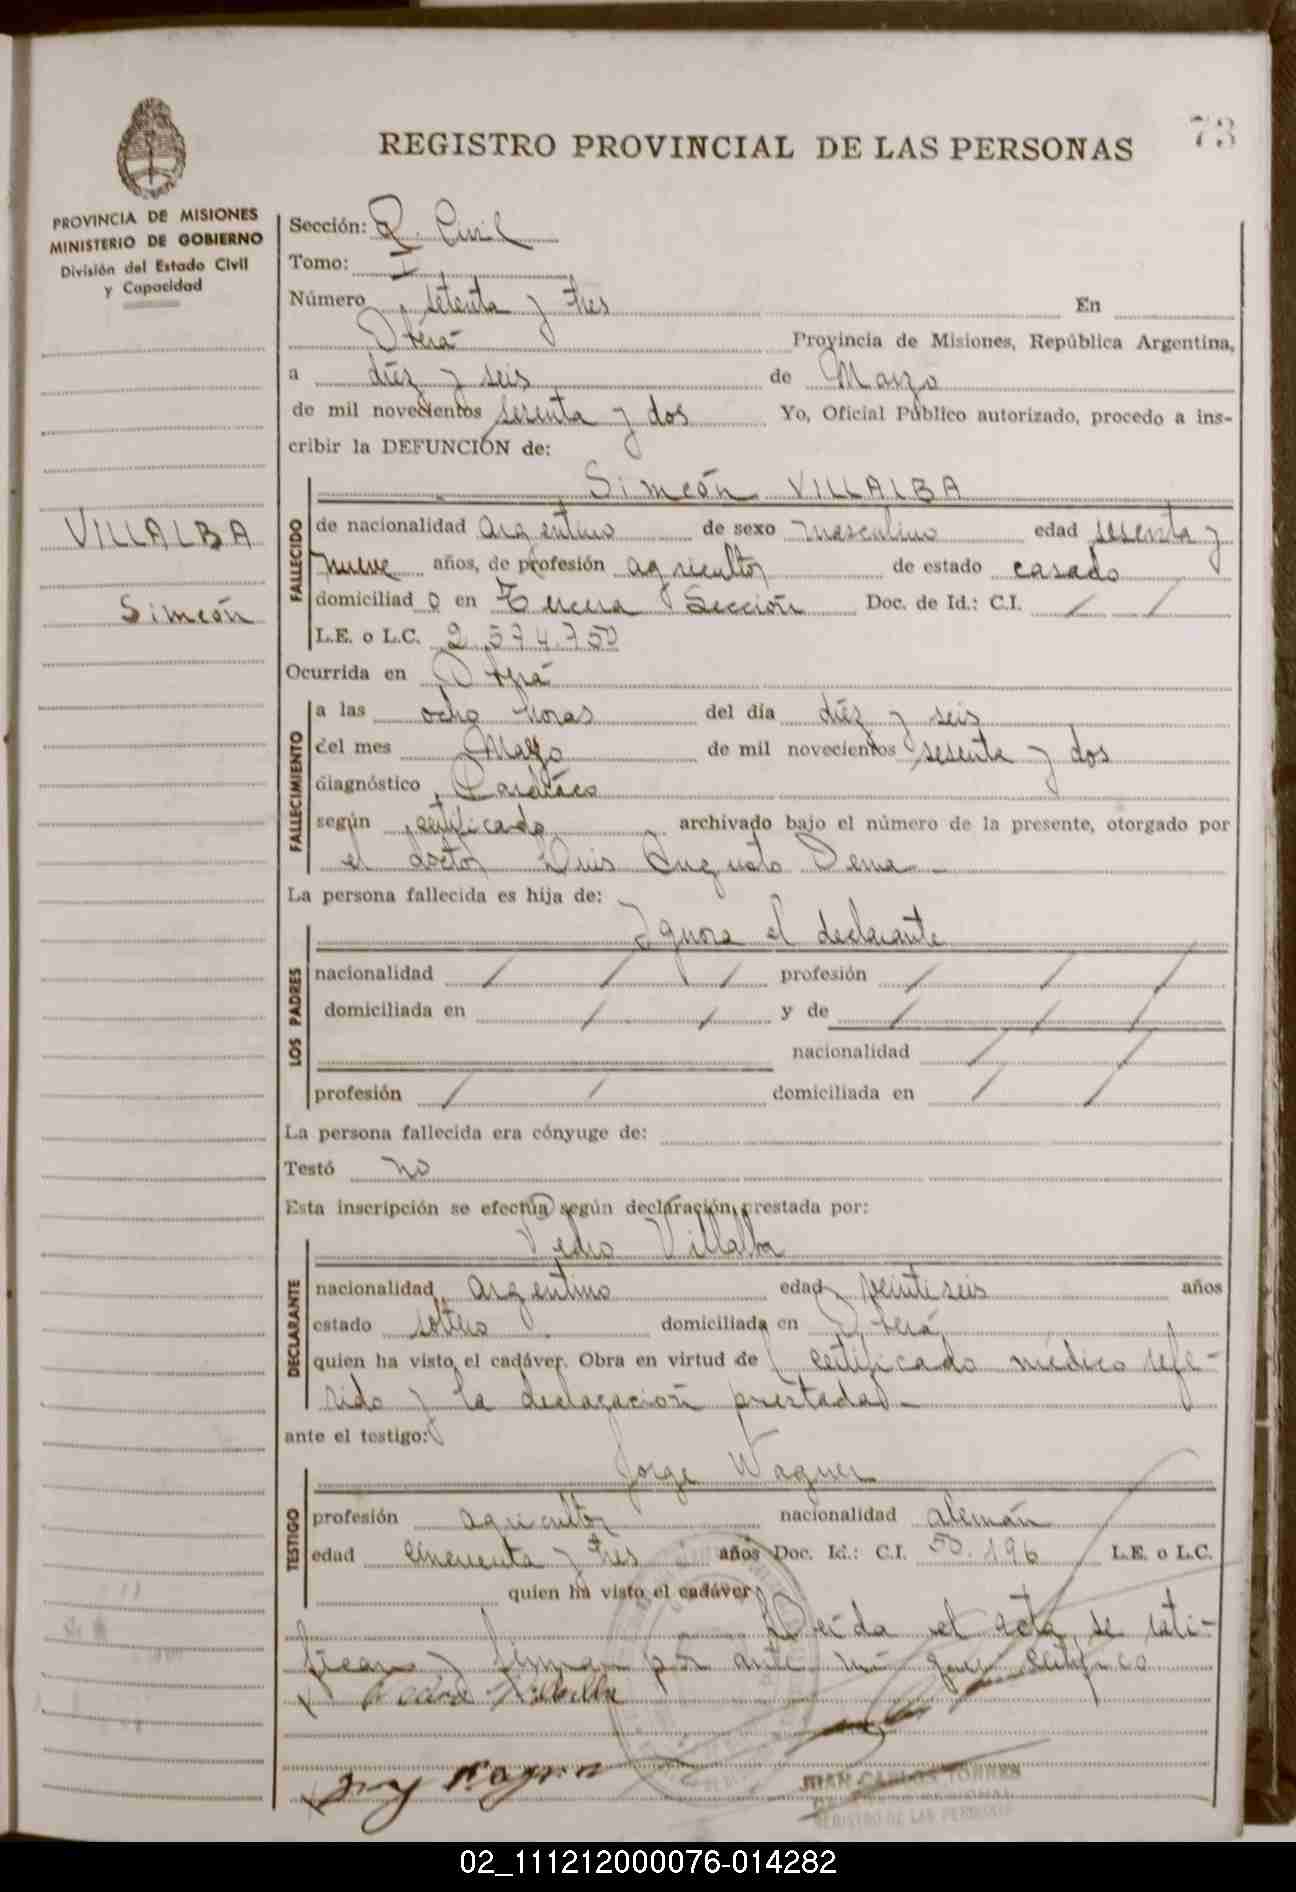 73
REGISTRO PROVINCIAL DE LAS PERSONAS
PROVINCIA DE MISIONES
MINISTERIO DE GOBIERNO
División del Estado Civil
y Capacidad
VILLALBA
Simeón
Sección: R. Civil
Tomo: I
Número setenta y tres En
Oberá Provincia de Misiones, República Argentina,
a diéz y seis de Marzo
de mil novecientos sesenta y dos Yo, Oficial Público autorizado, procedo a ins-
cribir la DEFUNCIÓN de:
Simeón VILLALBA
FALLECIDO
de nacionalidad argentino de sexo masculino edad sesenta y
nueve años, de profesión agricultor de estado casado
domiciliad o en Tercera Sección Doc. de Id.: C.I. / /
L.E. o L.C. 2.574.750
Ocurrida en Oberá
FALLECIMIENTO
a las ocho horas del día diéz y seis
del mes Marzo de mil novecientos sesenta y dos
diagnóstico Cardíaco
según certificado archivado bajo el número de la presente, otorgado por
el doctor Luis Augusto Dema
La persona fallecida es hija de:
Ignora el declarante
LOS PADRES
nacionalidad / / / profesión / / /
domiciliada en / / y de / / /
nacionalidad / /
profesión / / domiciliada en / /
La persona fallecida era cónyuge de:
Testó no
Esta inscripción se efectúa según declaración prestada por:
Pedro Villalba
DECLARANTE
nacionalidad argentino edad veintiseis años
estado soltero domiciliada en Oberá
quien ha visto el cadáver. Obra en virtud de certificado médico refe-
rido y la declaración prestada.-
ante el testigo:
Jorge Wagner
TESTIGO
profesión agricultor nacionalidad alemán
edad cincuenta y tres años Doc. Id.: C.I. 50.196 L.E. o L.C.
quien ha visto el cadáver Leída el acta se rati-
fican y firman por ante mí que certifico
Pedro Villalba
Wagner
JUAN CARLOS TORRES
REGISTRO DE LAS PERSONAS
02_111212000076-014282